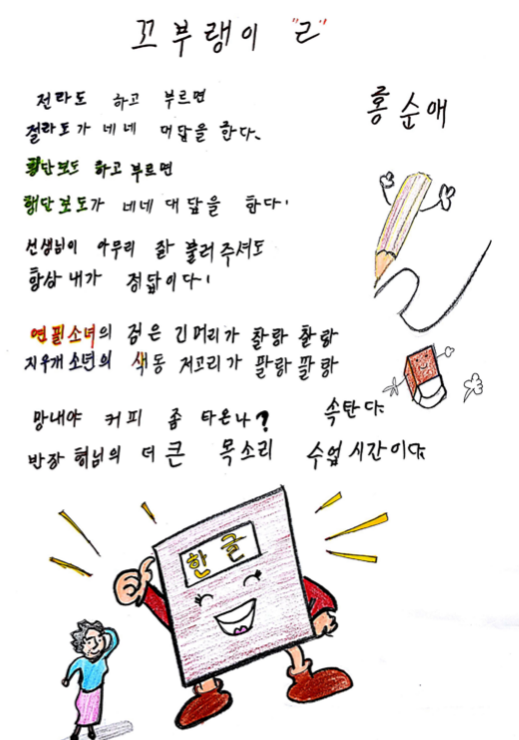 꼬부랭이 "ㄹ"
홍순애
전라도 하고 부르면
절라도가 네네 대답을 한다.
횡단보도 하고 부르면
행단보도가 네네 대답을 한다.
선생님이 아무리 잘 불러주셔도
항상 내가 정답이다!
연필소녀의 검은 긴머리가 찰랑 찰랑
지우개 소년의 색동 저고리가 팔랑 팔랑
망내야 커피 좀 타온나? 속탄다.
반장 형님의 더 큰 목소리 수업 시간이다.
한글